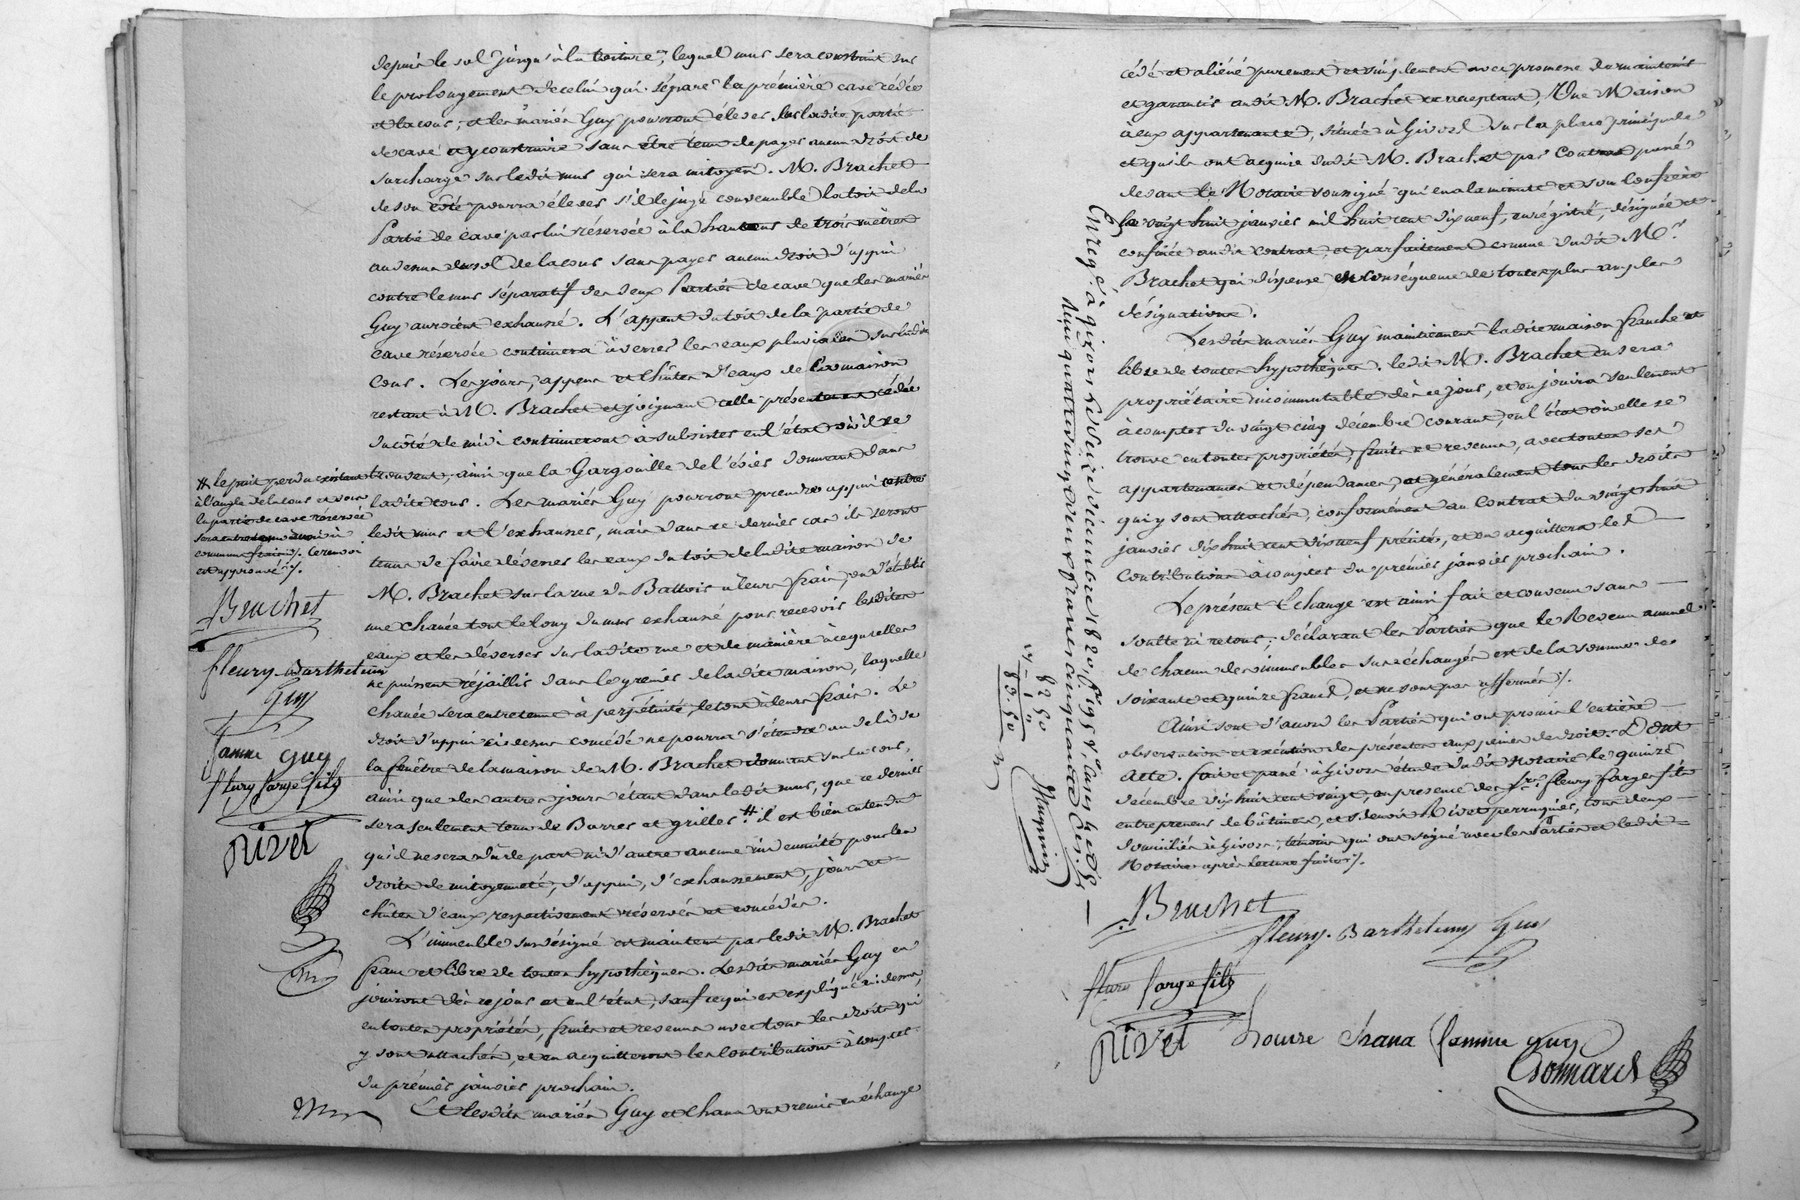 depuis le sol jusqu'à la toiture, lequel mur sera construit sur
le prolongement de celui qui sépare la première cave cédée
et la cour, et les mariés Guy pourront élever sur ladite partie
de cave et y construire sans être tenu de payer aucun droit de
surcharge sur ledit mur qui sera mitoyen. M. Brachet
de son côté pourra élever s'il le juge convenable le toit de la
Partie de cave par lui réservée à la hauteur de trois mètres
au dessus du sol de la cour sans payer aucun droit d'appui
contre le mur séparatif des deux Parties de cave que les mariés
Guy auroient exhaussé. L'appent du toit de la partie de
cave réservée continuera à verser les eaux pluviales sur ladite
Cour. Les jours, appens et chûtes d'eaux de la maison
restant à M. Brachet et joignant celle présentement cédée
du côté de midi continueront à subsister en l'état où il se
trouvent, ainsi que la Gargouille de l'évier donnant dans
ladite cour. Les mariés Guy pourront prendre appui contre
ledit mur et l'exhausser, mais dans ce dernier cas ils seront
tenus de faire déverser les eaux du toit de ladite maison de
M. Brachet sur la rue du Battoir à leurs frais, ou d'établir
une chanée tout le long du mur exhaussé pour recevoir lesdites
eaux et les déverser sur ladite rue et de manière à ce qu'elles
ne puissent réjaillir dans le grenier de ladite maison, laquelle
chanée sera entretenue à perpétuité, le tout à leurs frais. Le
droit d'appui ci dessus concédé ne pourra s'étendre au delà de
la fenêtre de la maison de M. Brachet donnant sur la cour,
ainsi que des autres jours étant dans ledit mur, que ce dernier
sera seulement tenu de Barrer et griller # il est bien entendu
qu'il ne sera dû de part ni d'autre aucune indemnité pour les
droits de mitoyenneté, d'appui, d'exhaussement, jours et
chûtes d'eaux respectivement réservés et concédés.
L'immeuble sus désigné est maintenu par ledit M. Brachet
franc et libre de toutes hypothèques. Lesdits mariés Guy en
jouiront dès ce jour et en l'état, sauf ce qui est expliqué ci dessus,
en toutes propriétés, fruits et revenus avec tous les droits qui
y sont attachés, et en acquitteront les Contributions à compter
du prémier janvier prochain.
Et lesdits mariés Guy et Chana ont remis en échange
# le puit perdu existant
à l'angle de la cour et sous
la partie de cave réservée
sera entretenu
commun frais ./. Ce renvoi
est approuvé ./.
JBrachet
fleury Barthelemy
Guy
famme guy
fleury farge fils
Rivet
cédé et aliéné purement et simplement avec promesse de maintenir
et garantir audit M. Brachet acceptant, Une Maison
à eux appartenante, située à Givors sur la place principale
et qu'ils ont acquise dudit M. Brachet par Contrat passé
devant le Notaire soussigné qui en a la minute et son Confrère
le vingt huit janvier mil huit cent dix neuf, enrégistré, désignée et
confinée audit contrat, et parfaitement connue dudit Mr.
Brachet qui dispense en conséquence de toutes plus amples
désignations.
Lesdits mariés Guy maintiennent ladite maison franche et
libre de toutes hypothèques. ledit M. Brachet en sera
propriétaire incommutable dès ce jour, et en jouira seulement
à compter du vingt cinq décembre courant, en l'état où elle se
trouve en toutes propriétés, fruits et revenus, avec toutes ses
appartenances et dépendances, et généralement tous les droits
qui y sont attachés, conformément au Contrat du vingt huit
janvier dix huit cent dix neuf précité, et en acquittera les
Contributions à compter du prémier janvier prochain.
Le présent Echange est ainsi fait et convenu sans
soulte ni retour; déclarant les Parties que le Revenu annuel
de chacun des immeubles sus échangés est de la somme de
soixante et quinze francs, et ne sont pas affermés ./.
Ainsi sont d'accord les Parties qui ont promis l'entière
observation et exécution des présentes aux peines de droit. Dont
Acte. fait et passé à Givors étude dudit Notaire le quinze
décembre dix huit cent vingt, en présence des Srs. fleury farge fils
entrepreneur de bâtimens, et Rivet perruquier, tous deux
domiciliés à Givors, témoins qui ont signé avec les Parties et ledit
Notaire après lecture faite ./.
JBrachet
fleury Barthelemy Guy
fleury farge fils
Rivet
Louise Chana famme guy
Bonnard
Enregé. à givors le seize décembre 1820, fo.
Reçu quatre vingt deux francs cinquante Ces.
82 50
83. 50